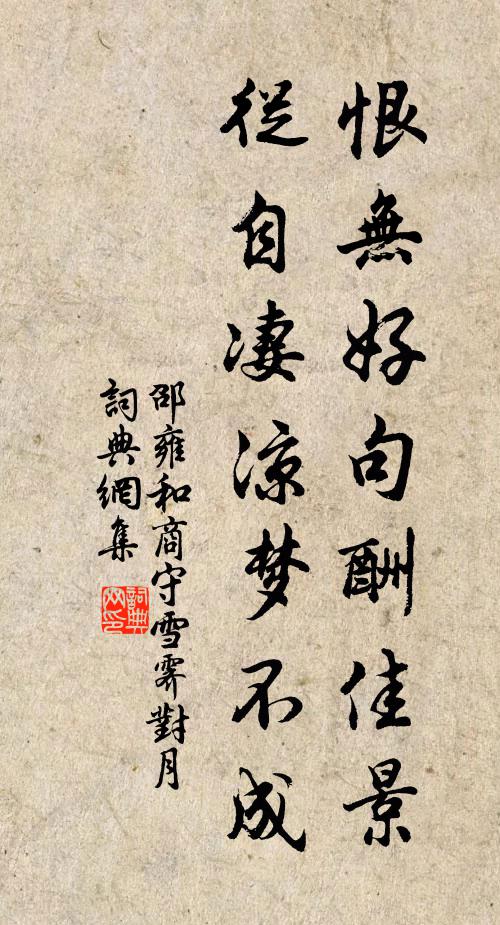 恨無好句酬佳景
從自凄涼梦不成
邵雍和商守雪霽對月
詞典網集
詞典网印